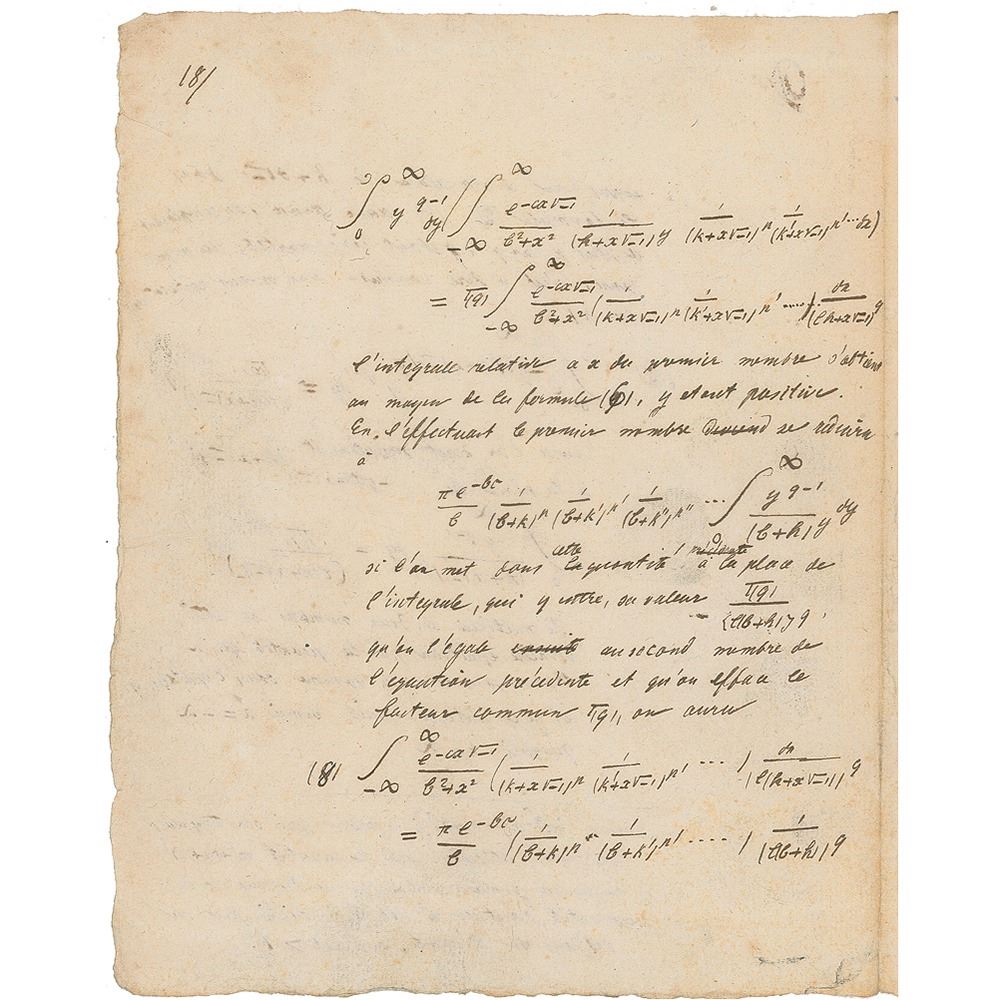 18/
∫₀^∞ y^{q-1} dy ( ∫_{-∞}^{∞} \frac{e^{-cx√-1}}{b²+x²} \frac{1}{(h+x√-1)^y} \frac{1}{(k+x√-1)^n} \frac{1}{(k'+x√-1)^{n'}} ... dx )
= Γ(q) ∫_{-∞}^{∞} \frac{e^{-cx√-1}}{b²+x²} ( \frac{1}{(k+x√-1)^n} \frac{1}{(k'+x√-1)^{n'}} .... ) \frac{dx}{(l(h+x√-1))^q}
l'integrale relative a x du premier membre s'obtient
au moyen de la formule (6), y etant positive.
En l'effectuant le premier membre se reduira
à
\frac{π e^{-bc}}{b} \frac{1}{(b+k)^n} \frac{1}{(b+k')^{n'}} \frac{1}{(b+k'')^{n''}} ... ∫₀^∞ \frac{y^{q-1}}{(b+h)^y} dy
si l'on met dans cette quantité à la place de
l'integrale, qui y entre, sa valeur \frac{Γ(q)}{{l(b+h)}^q},
qu'on l'égale ensuite au second membre de
l'equation précédente et qu'on efface le
facteur commun Γ(q), on aura
(8) ∫_{-∞}^{∞} \frac{e^{-cx√-1}}{b²+x²} ( \frac{1}{(k+x√-1)^n} \frac{1}{(k'+x√-1)^{n'}} .... ) \frac{dx}{(l(h+x√-1))^q}
= \frac{π e^{-bc}}{b} ( \frac{1}{(b+k)^n} \frac{1}{(b+k')^{n'}} ..... ) \frac{1}{(l(b+h))^q}